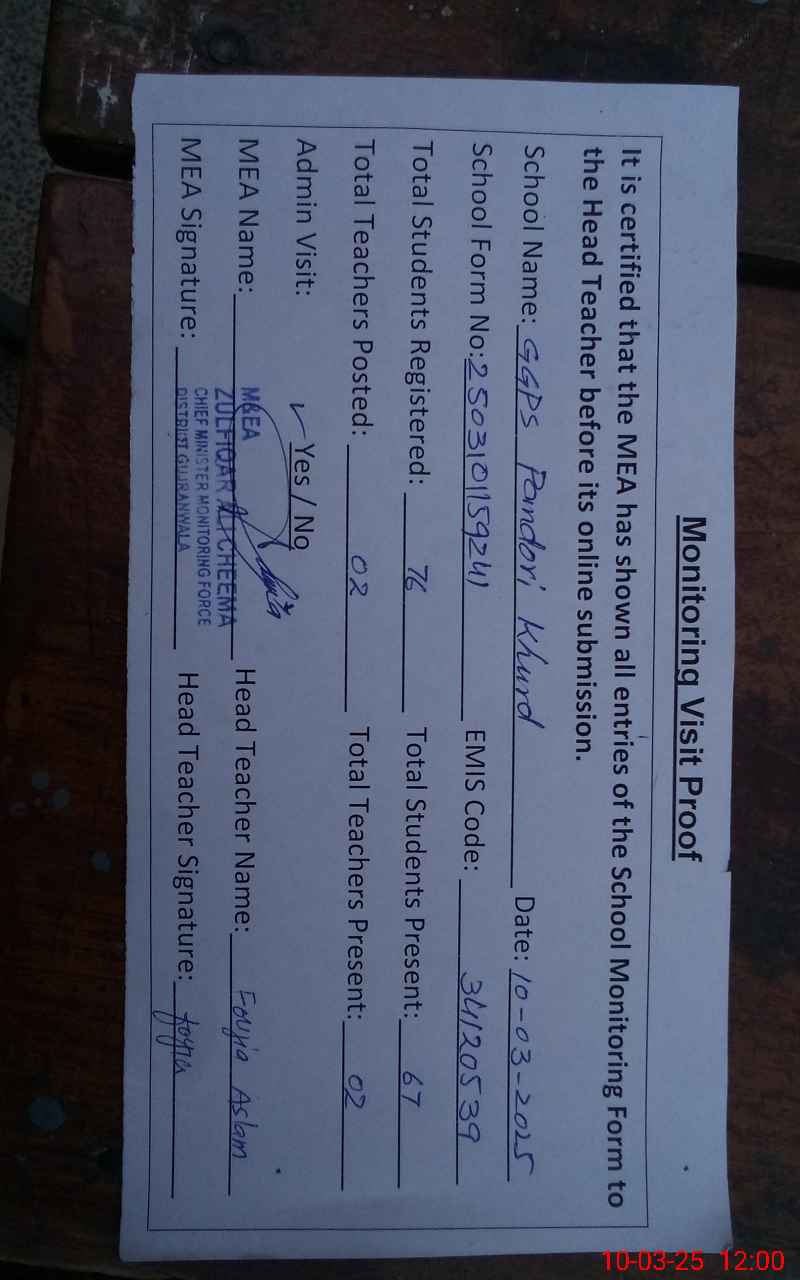 Monitoring Visit Proof
It is certified that the MEA has shown all entries of the School Monitoring Form to
the Head Teacher before its online submission.
School Name: GGPS Pandori Khurd Date: 10-03-2025
School Form No: 250310159241 EMIS Code: 34120539
Total Students Registered: 76 Total Students Present: 67
Total Teachers Posted: 02 Total Teachers Present: 02
Admin Visit: ✓ Yes / No
MEA Name: Head Teacher Name: Fouzia Aslam
M&EA
ZULFIQAR ALI CHEEMA
CHIEF MINISTER MONITORING FORCE
DISTRICT GUJRANWALA
MEA Signature: Head Teacher Signature: fouzia
10-03-25 12:00